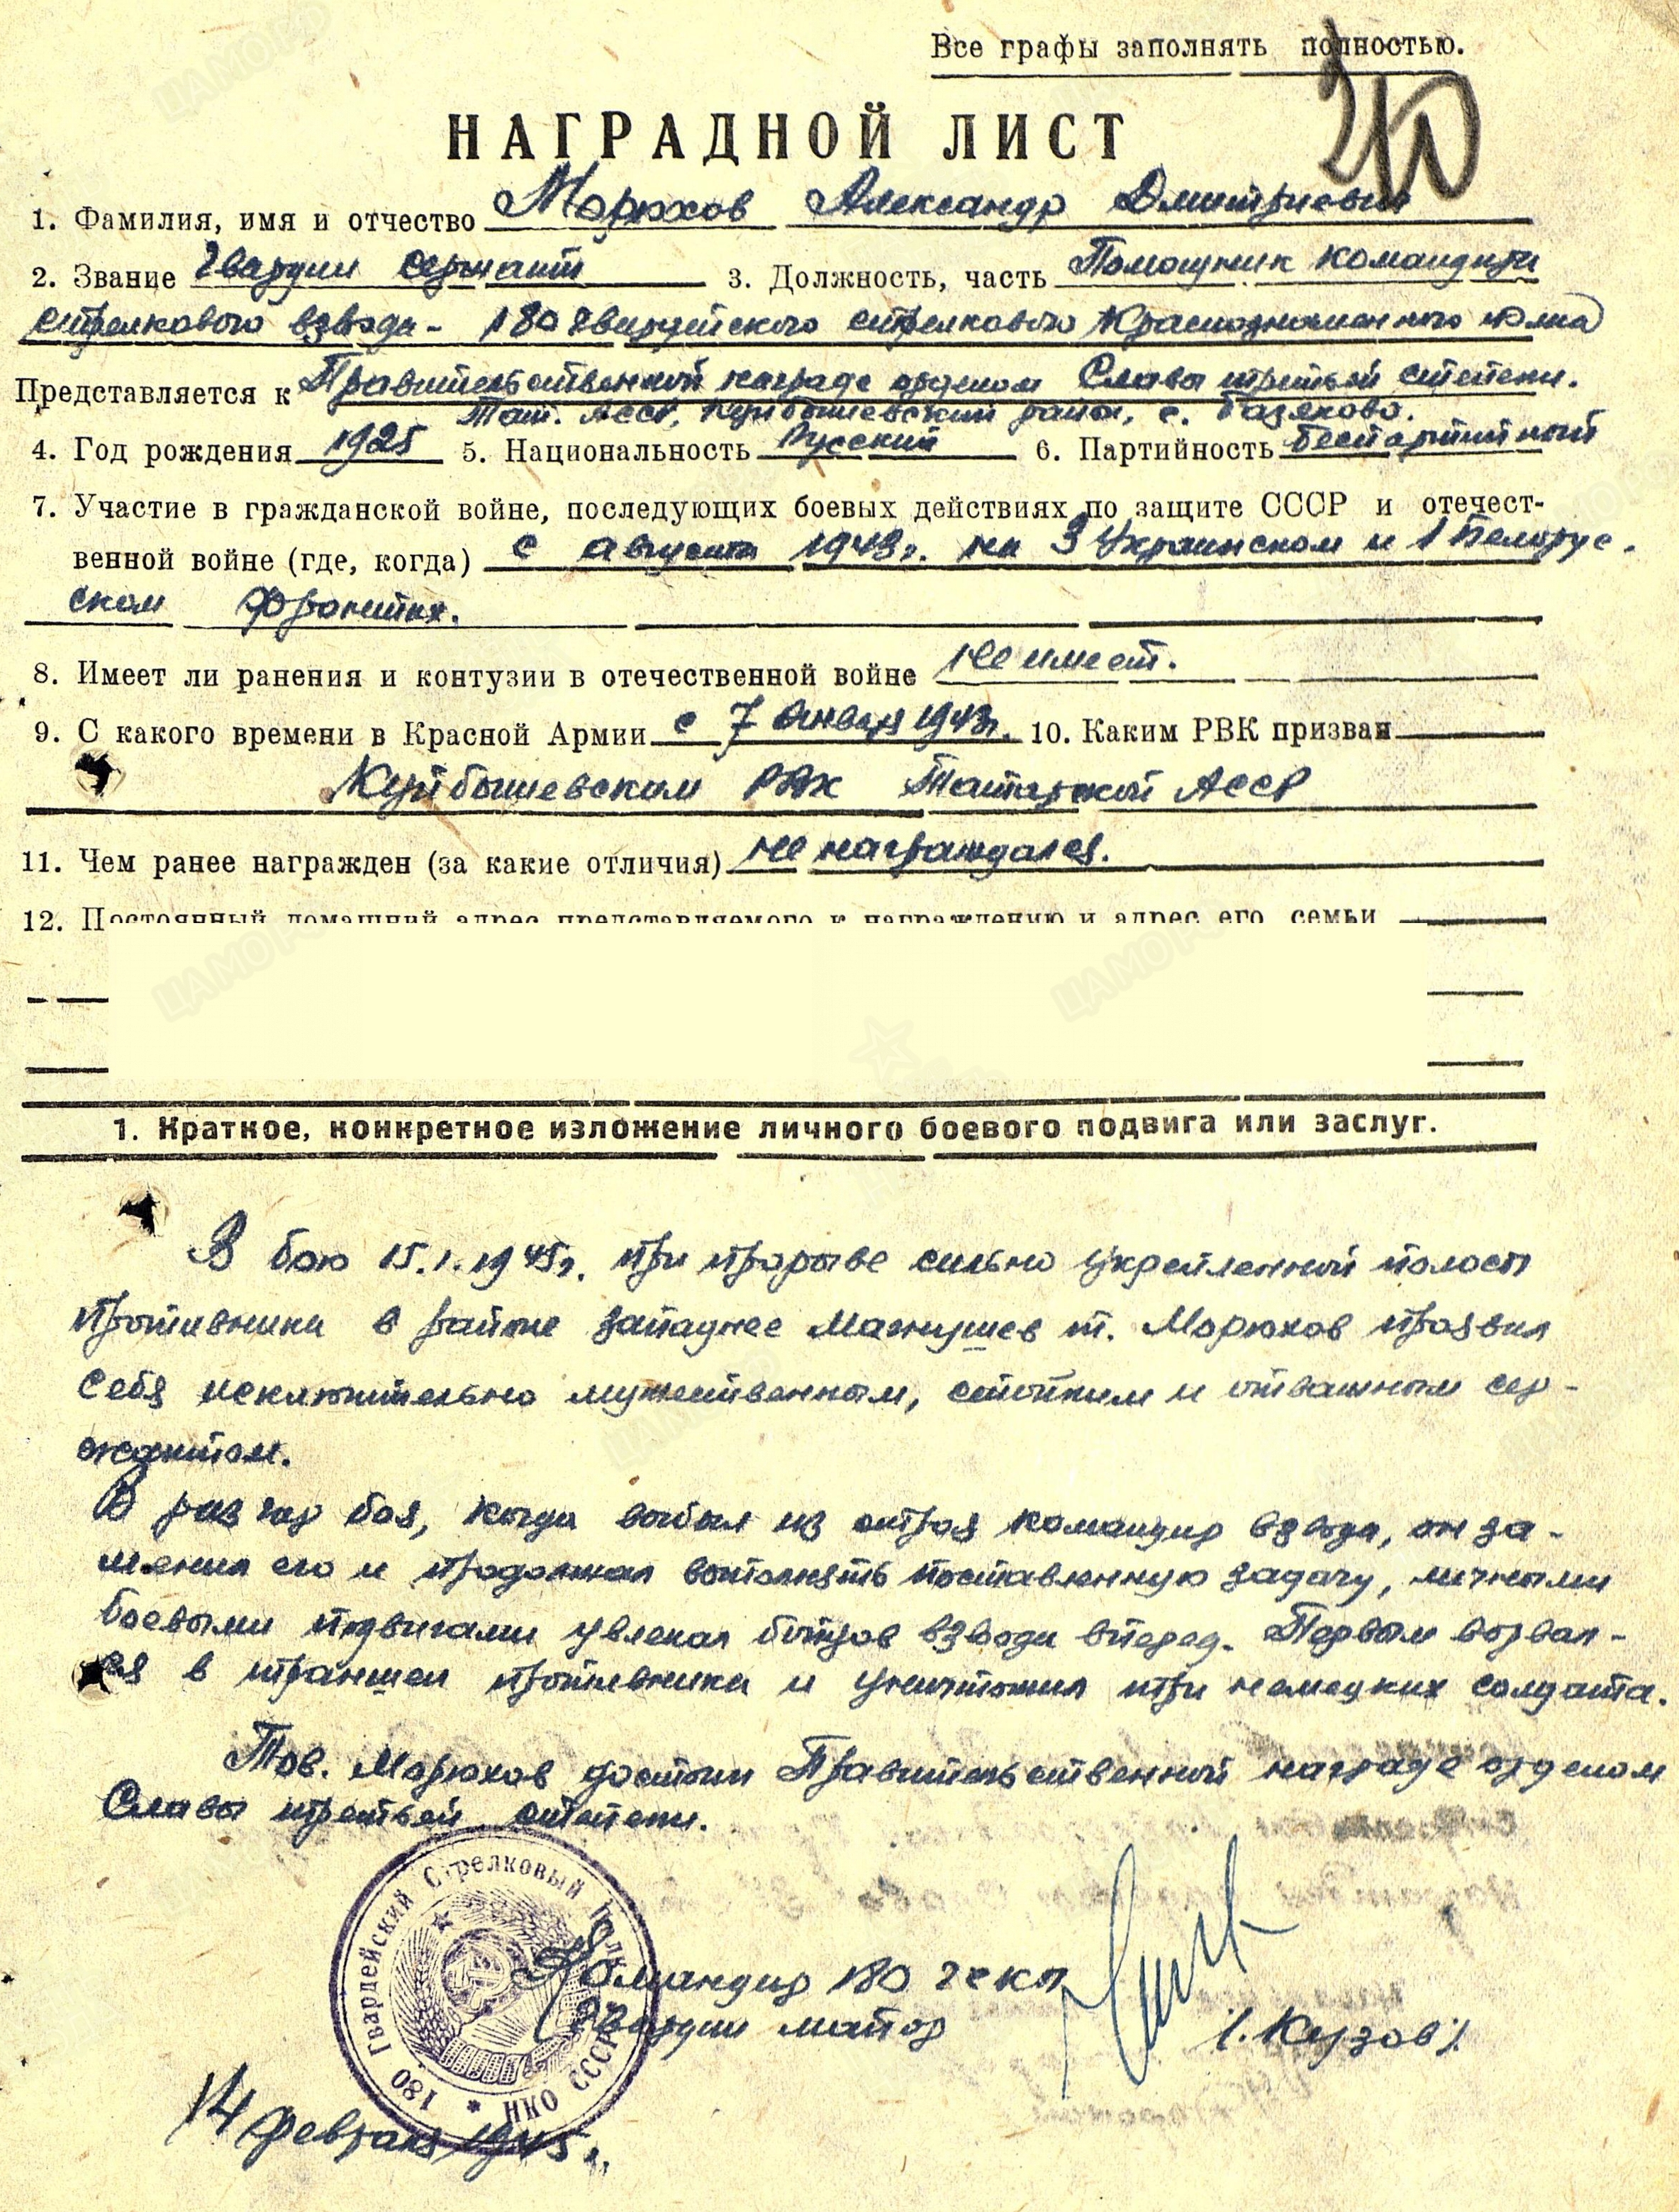 Все графы заполнять полностью.
НАГРАДНОЙ ЛИСТ
1. Фамилия, имя и отчество Морюхов Александр Дмитриевич
2. Звание Гвардии сержант 3. Должность, часть Помощник командира
стрелкового взвода - 180 гвардейского стрелкового Краснознаменного полка
Представляется к Правительственной награде орденом Славы третьей степени.
Тат. АССР, Куйбышевский район, с. Базяково.
4. Год рождения 1925 5. Национальность Русский 6. Партийность беспартийный
7. Участие в гражданской войне, последующих боевых действиях по защите СССР и отечест-
венной войне (где, когда) с августа 1943г. на 3 Украинском и 1 Белорус-
ском фронтах.
8. Имеет ли ранения и контузии в отечественной войне не имеет.
9. С какого времени в Красной Армии с 7 января 1943г. 10. Каким РВК призван
Куйбышевским РВК Татарской АССР
11. Чем ранее награжден (за какие отличия) не награждался.
12. Постоянный домашний адрес представляемого к награждению и адрес его семьи
1. Краткое, конкретное изложение личного боевого подвига или заслуг.
В бою 15.1.1945г. при прорыве сильно укрепленной полосы
противника в районе западнее Магнушев т. Морюхов проявил
себя исключительно мужественным, стойким и отважным сер-
жантом.
В разгар боя, когда выбыл из строя командир взвода, он за-
менил его и продолжал выполнять поставленную задачу, личными
боевыми подвигами увлекал бойцов взвода вперед. Первым ворвал-
ся в траншеи противника и уничтожил три немецких солдата.
Тов. Морюхов достоин Правительственной награде орденом
Славы третьей степени.
180 Гвардейский Стрелковый Полк
НКО СССР
Командир 180 гскп
Гвардии майор
/. Кузов /.
14 февраля 1945г.